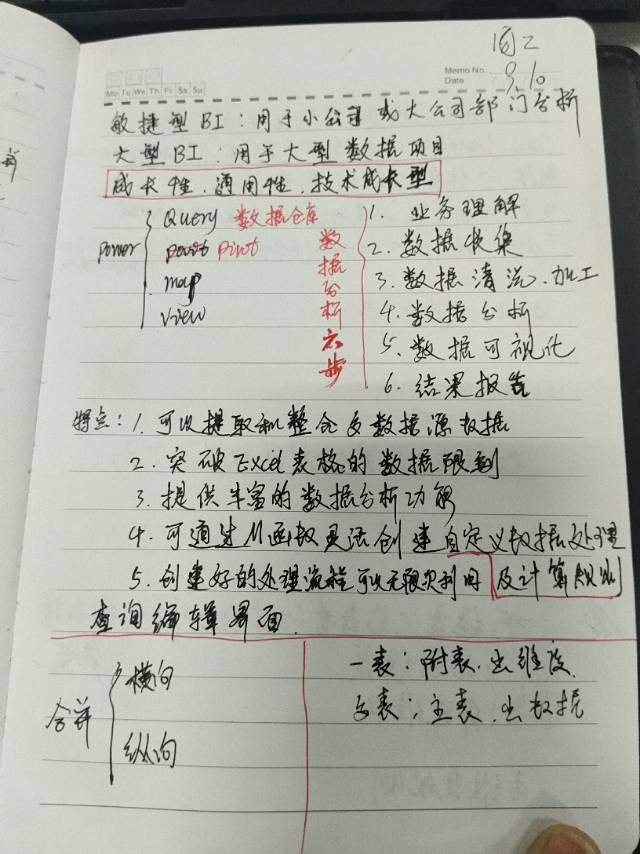 周二
Memo No.
Mo Tu We Th Fr Sa Su
Date 9.10
敏捷型BI：用于小公司或大公司部门分析
大型BI：用于大型数据项目
成长性.通用性.技术成长型
power
Query 数据仓库
pivot
map
view
数据分析六步
1. 业务理解
2. 数据收集
3. 数据清洗.加工
4. 数据分析
5. 数据可视化
6. 结果报告
特点：1. 可以提取和整合多数据源数据
2. 突破Excel表格的数据限制
3. 提供丰富的数据分析功能
4. 可通过M函数灵活创建自定义数据处理
及计算规则
5. 创建好的处理流程可以无限次利用
查询编辑界面.
合并
横向
纵向
一表：附表.出维度.
多表：主表.出数据